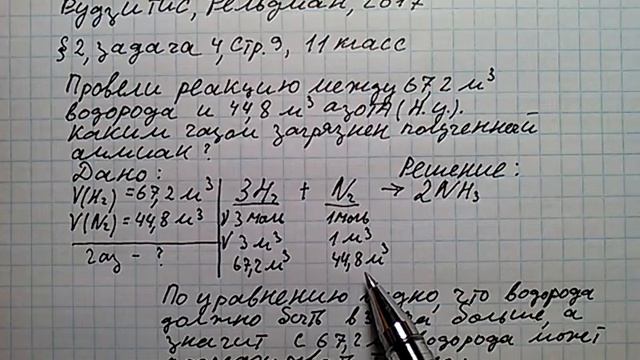 Рудзитис, Фельдман, 2017
§2, задача 4, стр. 9, 11 класс
Провели реакцию между 67,2 м³
водорода и 44,8 м³ азота (н.у.).
Каким газом загрязнен полученный
аммиак?
Дано: Решение:
V(H₂) = 67,2 м³ 3H₂ + N₂ → 2NH₃
V(N₂) = 44,8 м³ ν 3 моль 1 моль
V 3 м³ 1 м³
газ – ? 67,2 м³ 44,8 м³
По уравнению что водорода
должно быть в больше, а
значит с 67,2 водорода может